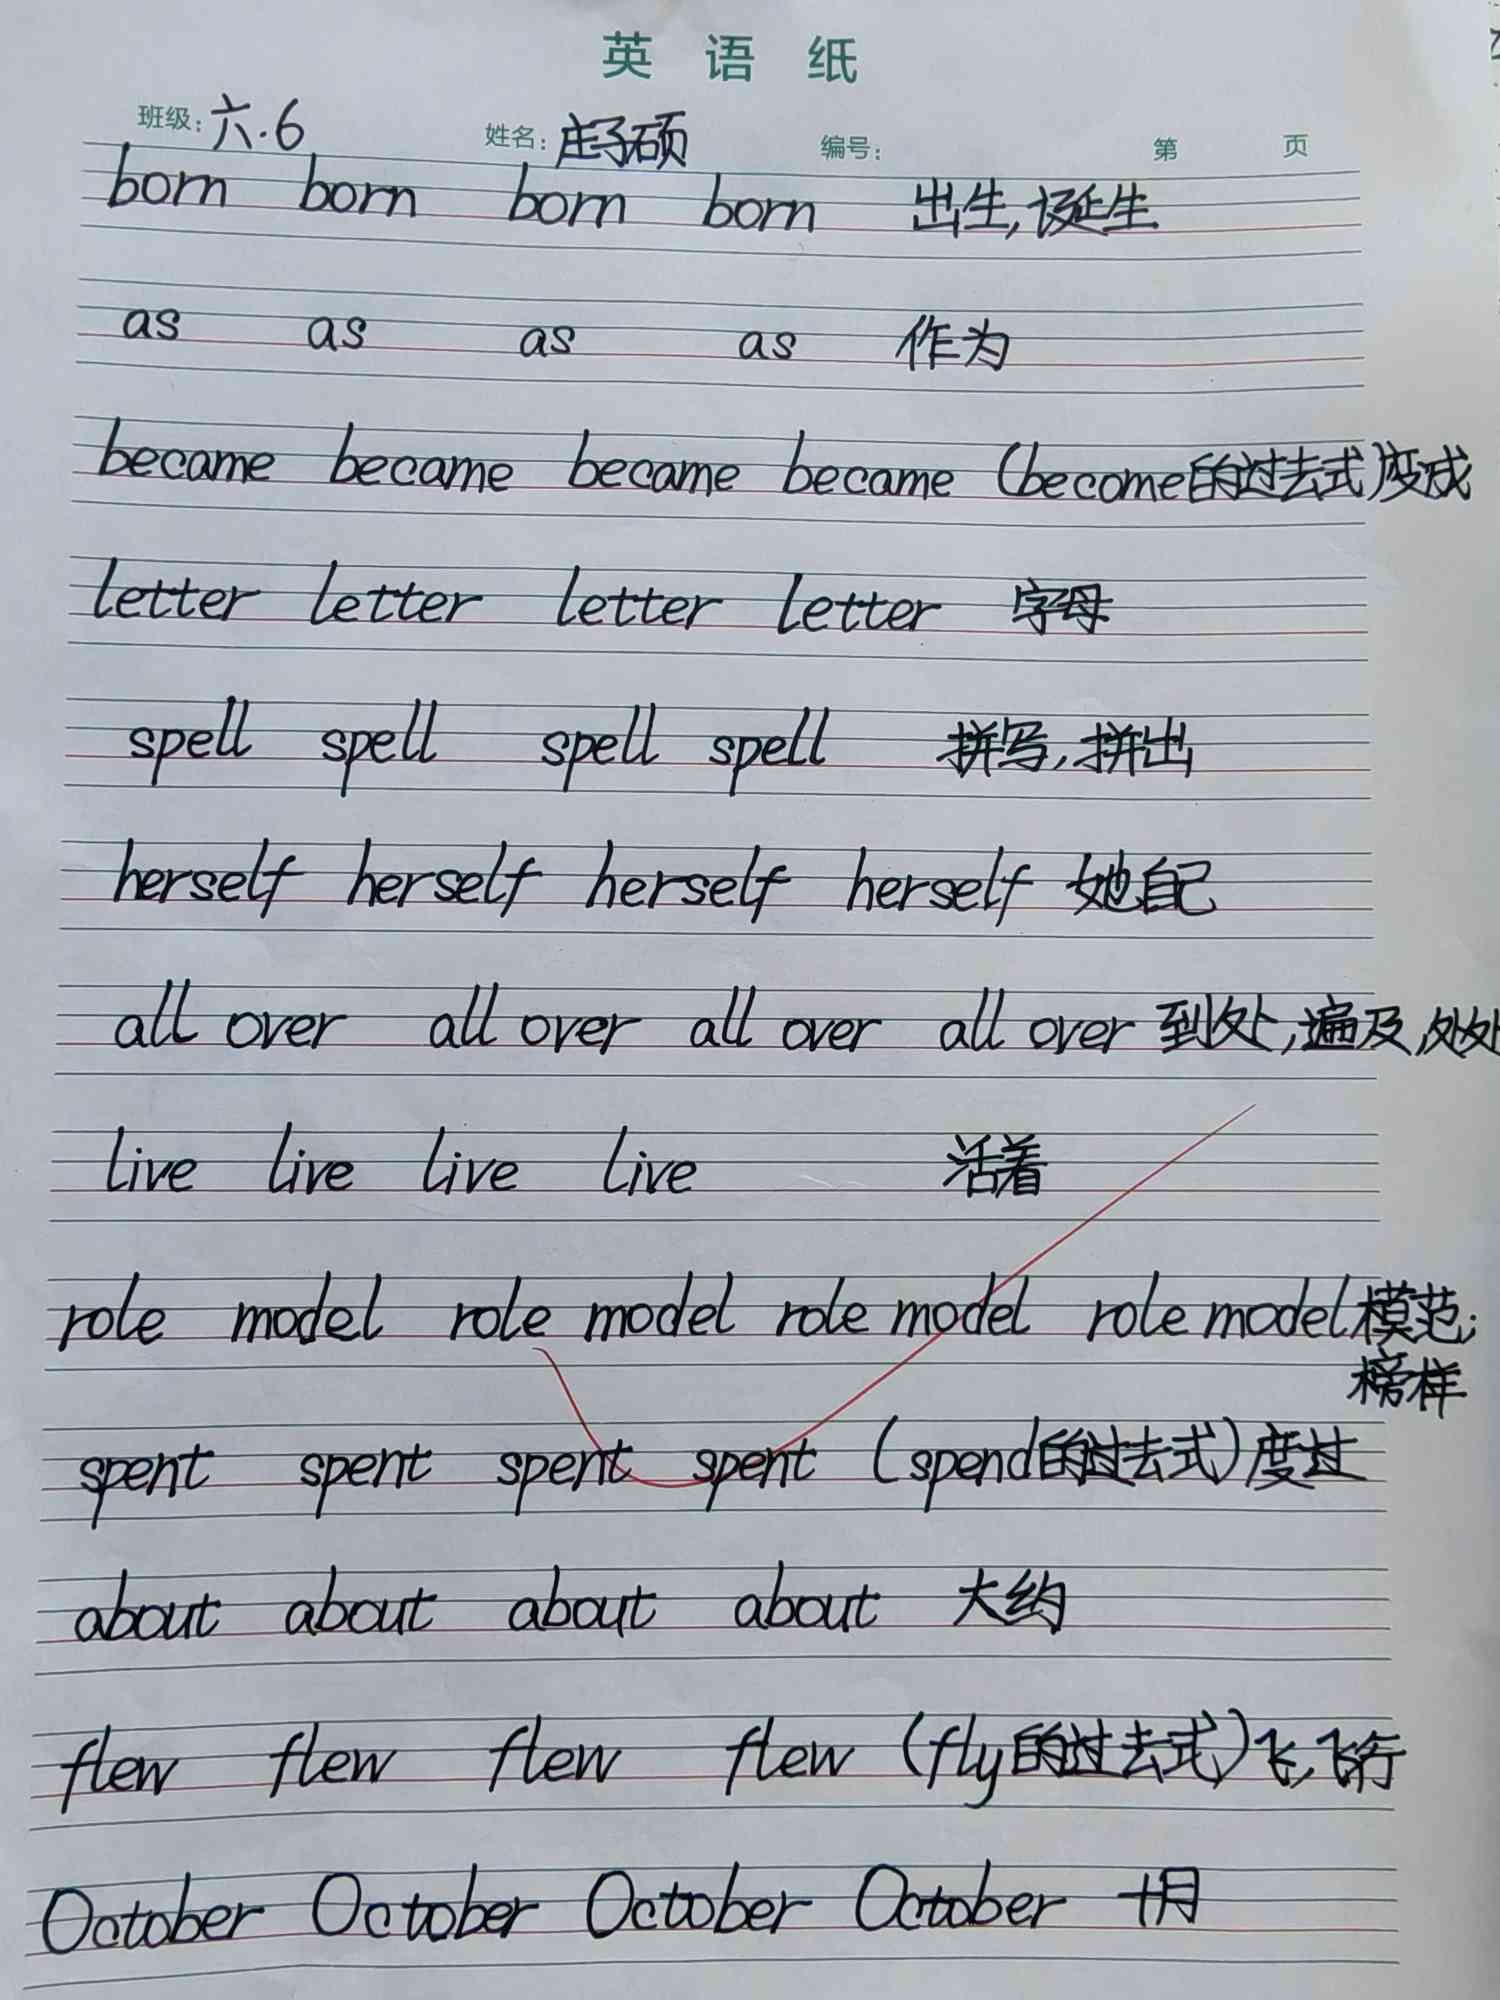 英语纸
班级: 六.6 姓名: 庄子硕 编号: 第 页
born born born born 出生,诞生
as as as as 作为
became became became became (become的过去式)变成
letter letter letter letter 字母
spell spell spell spell 拼写,拼出
herself herself herself herself 她自己
all over all over all over all over 到处,遍及,处处
live live live live 活着
role model role model role model role model 模范;
榜样
spent spent spent spent (spend的过去式)度过
about about about about 大约
flew flew flew flew (fly的过去式)飞,飞行
October October October October 十月